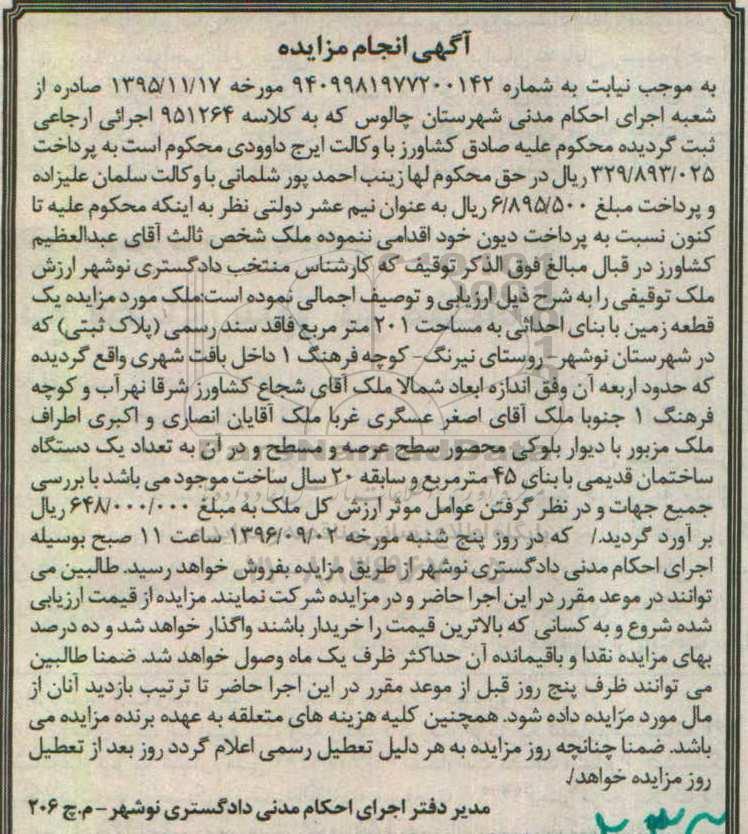 آگهی انجام مزایده
به موجب نیابت به شماره ۹۴۰۹۹۸۱۹۷۷۲۰۰۱۴۲ مورخه ۱۳۹۵/۱۱/۱۷ صادره از
شعبه اجرای احکام مدنی شهرستان چالوس که به کلاسه ۹۵۱۲۶۴ اجرائی ارجاعی
ثبت گردیده محکوم علیه صادق کشاورز با وکالت ایرج داوودی محکوم است به پرداخت
۳۲۹/۸۹۳/۰۲۵ ریال در حق محکوم لها زینب احمد پور شلمانی با وکالت سلمان علیزاده
و پرداخت مبلغ ۶/۸۹۵/۵۰۰ ریال به عنوان نیم عشر دولتی نظر به اینکه محکوم علیه تا
کنون نسبت به پرداخت دیون خود اقدامی ننموده ملک شخص ثالث آقای عبدالعظیم
کشاورز در قبال مبالغ فوق الذکر توقیف که کارشناس منتخب دادگستری نوشهر ارزش
ملک توقیفی را به شرح ذیل ارزیابی و توصیف اجمالی نموده است:ملک مورد مزایده یک
قطعه زمین با بنای احداثی به مساحت ۲۰۱ متر مربع فاقد سند رسمی (پلاک ثبتی) که
در شهرستان نوشهر- روستای نیرنگ- کوچه فرهنگ ۱ داخل بافت شهری واقع گردیده
که حدود اربعه آن وفق اندازه ابعاد شمالا ملک آقای شجاع کشاورز شرقا نهرآب و کوچه
فرهنگ ۱ جنوبا ملک آقای اصغر عسگری غربا ملک آقایان انصاری و اکبری اطراف
ملک مزبور با دیوار بلوکی محصور سطح عرصه و مسطح و در آن به تعداد یک دستگاه
ساختمان قدیمی با بنای ۴۵ مترمربع و سابقه ۲۰ سال ساخت موجود می باشد با بررسی
جمیع جهات و در نظر گرفتن عوامل موثر ارزش کل ملک به مبلغ ۶۴۸/۰۰۰/۰۰۰ ریال
بر آورد گردید./ که در روز پنج شنبه مورخه ۱۳۹۶/۰۹/۰۲ ساعت ۱۱ صبح بوسیله
اجرای احکام مدنی دادگستری نوشهر از طریق مزایده بفروش خواهد رسید. طالبین می
توانند در موعد مقرر در این اجرا حاضر و در مزایده شرکت نمایند. مزایده از قیمت ارزیابی
شده شروع و به کسانی که بالاترین قیمت را خریدار باشند واگذار خواهد شد و ده درصد
بهای مزایده نقدا و باقیمانده آن حداکثر ظرف یک ماه وصول خواهد شد. ضمنا طالبین
می توانند ظرف پنج روز قبل از موعد مقرر در این اجرا حاضر تا ترتیب بازدید آنان از
مال مورد مزایده داده شود. همچنین کلیه هزینه های متعلقه به عهده برنده مزایده می
باشد. ضمنا چنانچه روز مزایده به هر دلیل تعطیل رسمی اعلام گردد روز بعد از تعطیل
روز مزایده خواهد./
مدیر دفتر اجرای احکام مدنی دادگستری نوشهر - م.چ ۲۰۶